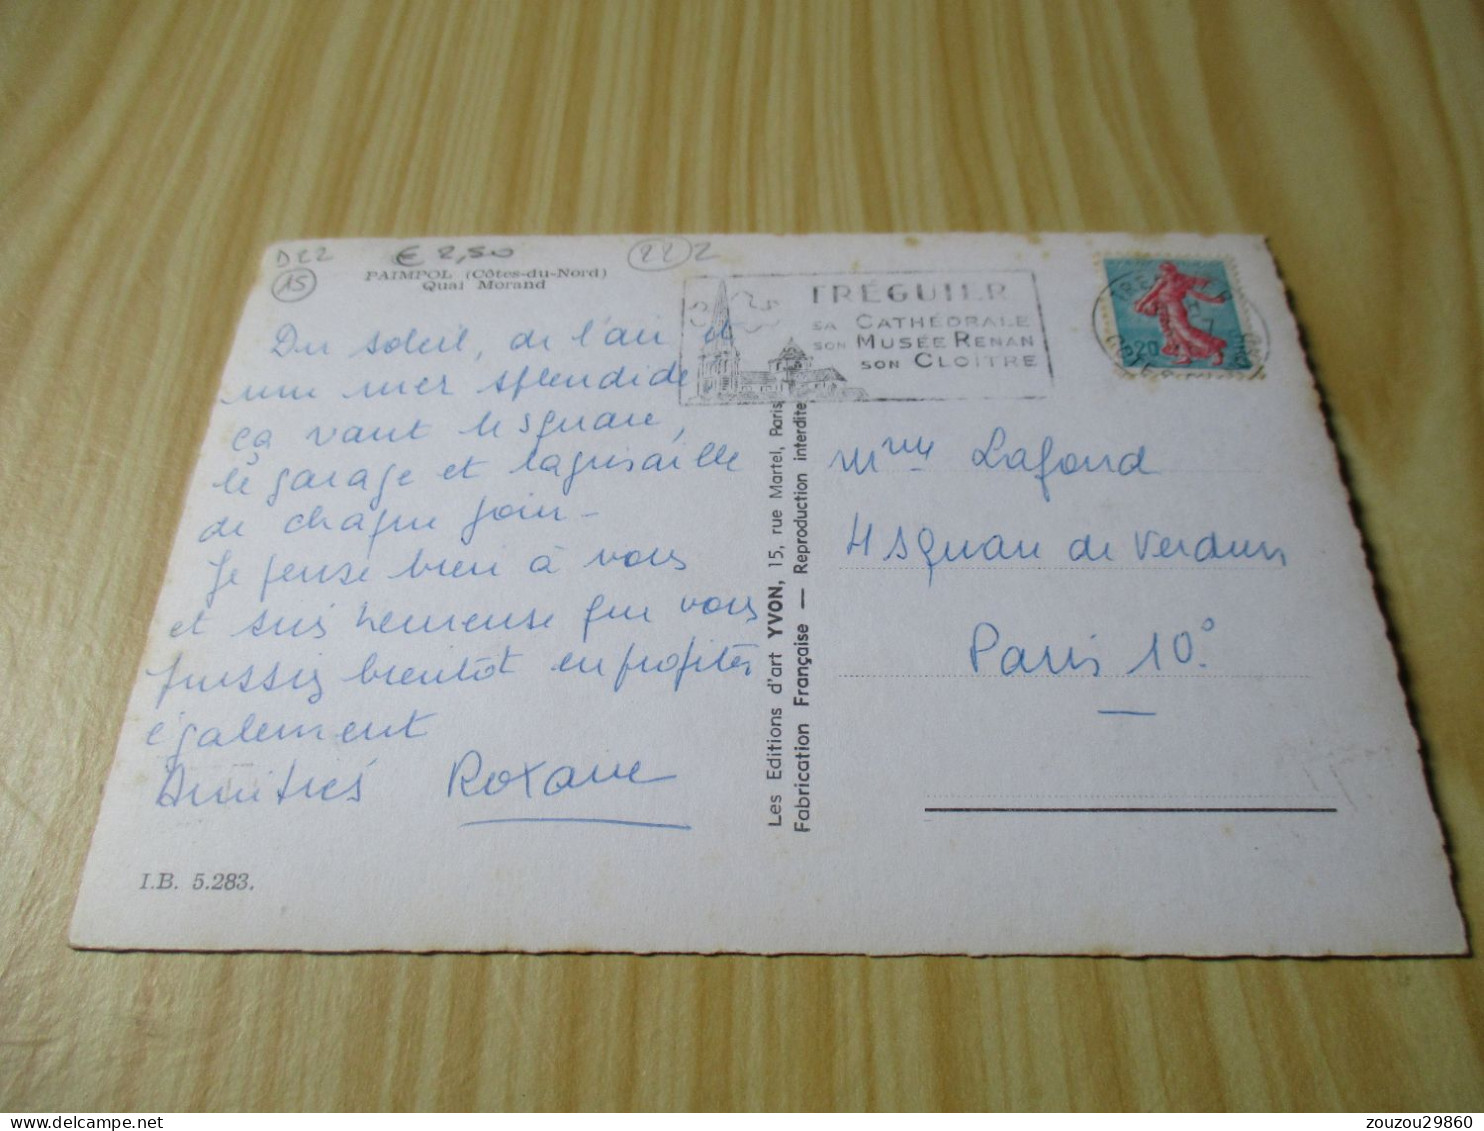 D22
€ 2,50
22 2
15
PAIMPOL (Côtes-du-Nord)
Quai Morand
Du soleil, de l'air et
une mer splendide
ça vaut le square,
le garage et la grisaille
de chaque jour -
Je pense bien à vous
et suis heureuse que vous
puissiez bientôt en profiter
également
Amitiés Roxane
I.B. 5.283.
Les Editions d'art YVON, 15, rue Martel, Paris
Fabrication Française — Reproduction interdite
TRÉGUIER
SA CATHÉDRALE
SON MUSÉE RENAN
SON CLOÎTRE
Mme Lafond
4 square de Verdun
Paris 10°
zouzou29860